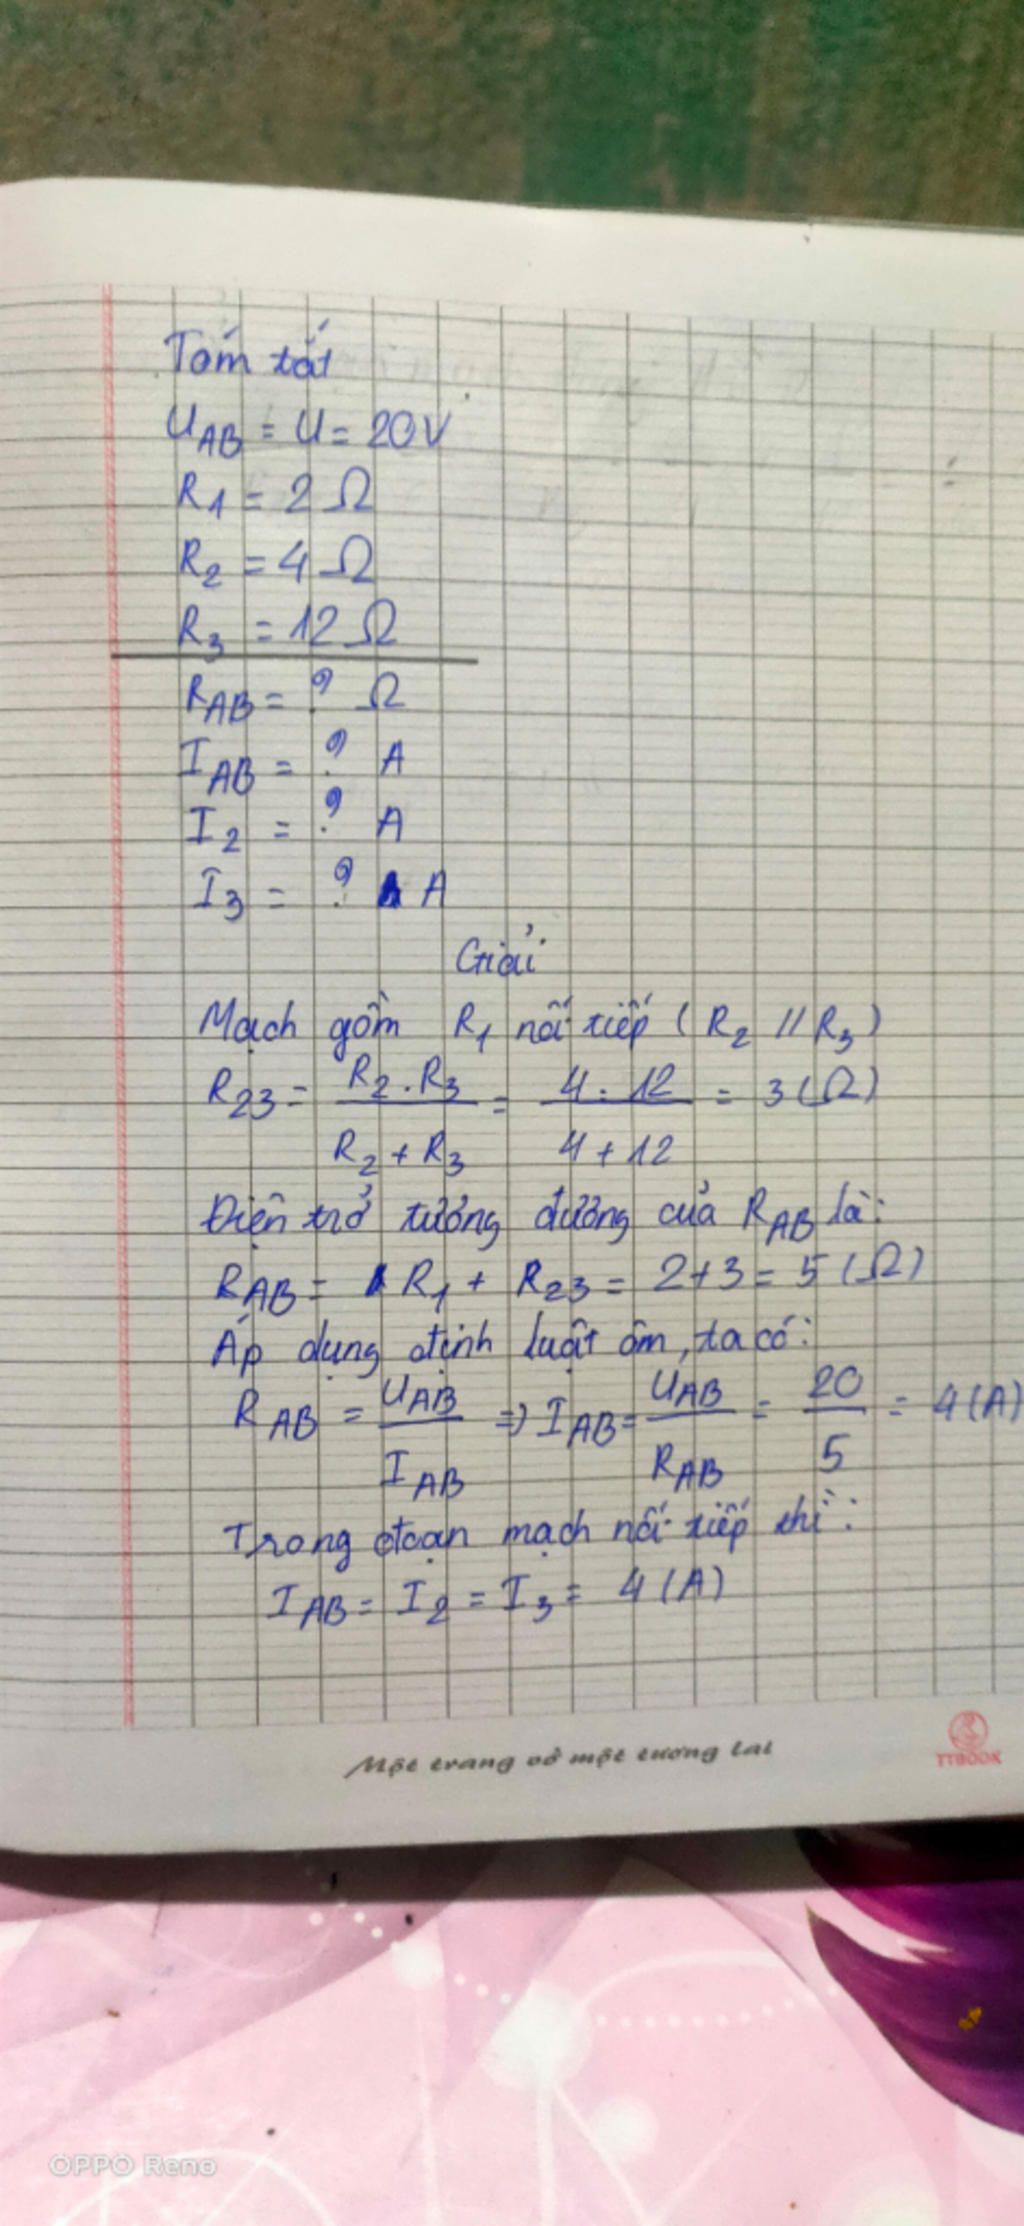 Tóm tắt
U_AB = U = 20V
R_1 = 2 Ω
R_2 = 4 Ω
R_3 = 12 Ω
R_AB = ? Ω
I_AB = ? A
I_2 = ? A
I_3 = ? A
Giải
Mạch gồm R_1 nối tiếp (R_2 // R_3)
R_23 = R_2 . R_3 / R_2 + R_3 = 4 . 12 / 4 + 12 = 3 (Ω)
Điện trở tương đương của R_AB là:
R_AB = R_1 + R_23 = 2 + 3 = 5 (Ω)
Áp dụng định luật ôm, ta có:
R_AB = U_AB / I_AB => I_AB = U_AB / R_AB = 20 / 5 = 4 (A)
Trong đoạn mạch nối tiếp thì:
I_AB = I_2 = I_3 = 4 (A)
Một trang vở một tương lai
TTBOOK
OPPO Reno